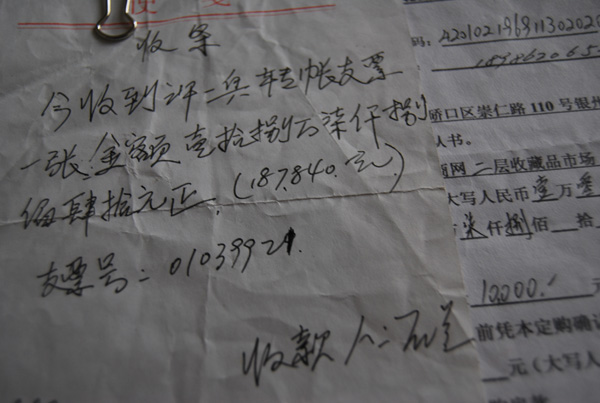 收条
今收到许二兵转帐支票
一张.金额壹拾捌万柒仟捌
佰肆拾元正.(187.840.元)
支票号:01039921.
收款人:石兰
码:
桥口区崇仁路110号银州
人书。
商网 二层收藏品市场
大写人民币壹万叁
柒仟捌佰 拾
10,000.- 元
前凭本定购确认
元(大写人